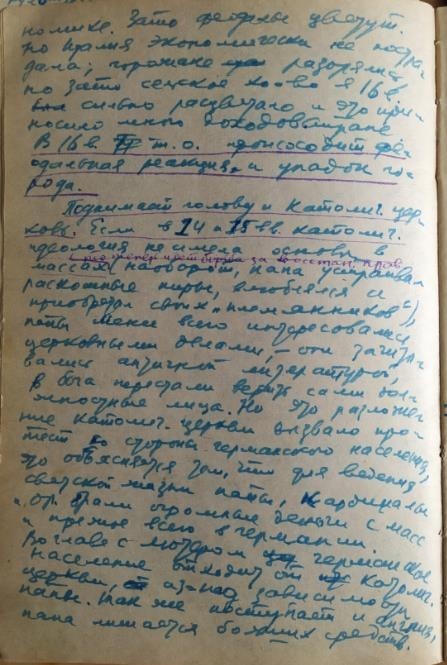 номике. Зато феодалы цветут.
Но Италия экономически не постра-
дала; горожане разорялись,
но зато сельское хоз-во в 16 в.
сильно расцветало и это при-
носило много доходов
В 16 в. т. о. происходит фе-
одальная реакция и упадок го-
рода.
Поднимает голову и католич. цер-
ковь. Если в 14 и 15 вв. католич.
идеология не имела основы в
массах (наоборот, папа устраивал
роскошные пиры, влюблялся и
приобретал своих "племянников"),
папы менее всего интересовались
церковными делами, – они зачиты-
вались античной литературой,
в бога перестали верить сами дол-
жностные лица. Но это разложе-
ние католич. церкви вызвало про-
тест со стороны германского населения,
это объясняется тем, что для ведения
светской жизни папы, кардиналы
и т.п. брали огромные деньги с масс
и прежде всего в Германии.
Во главе с Лютером германское
население отходит от католич.
церкви, из-под зависимости
папы. Так же поступает и Англия,
папа лишается больших средств.